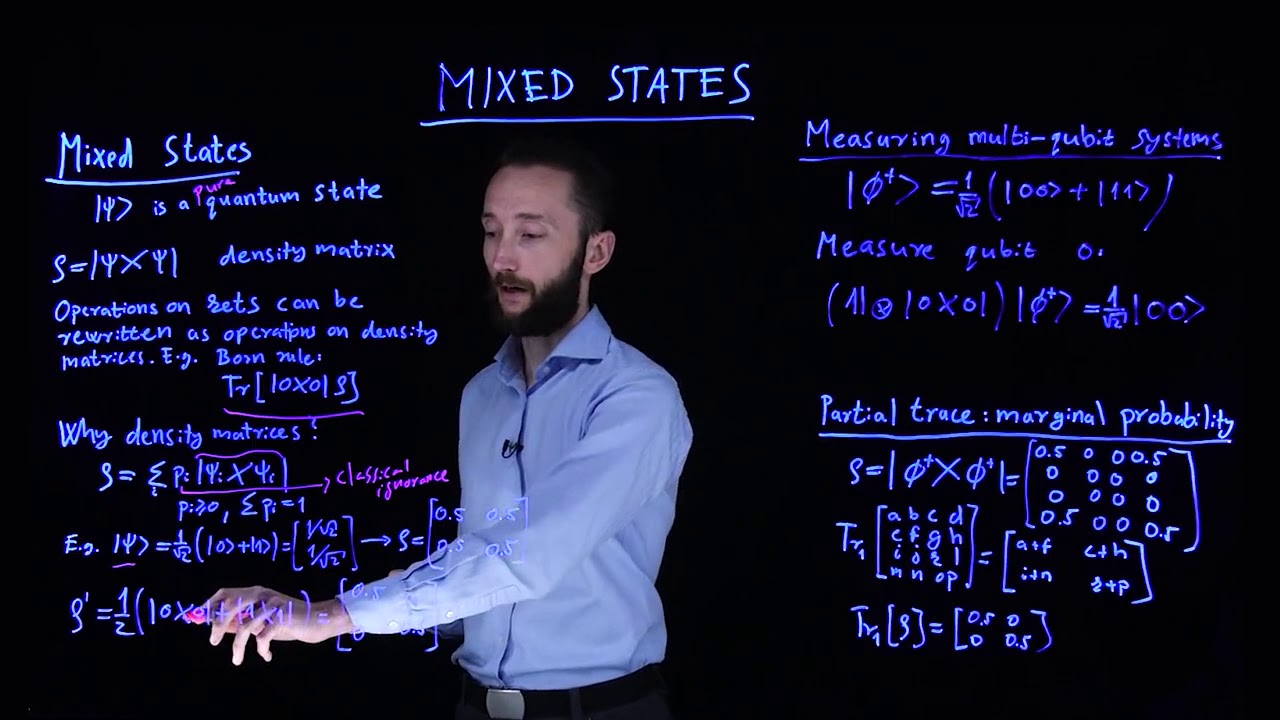 MIXED STATES
Mixed States
|Ψ> is a pure quantum state
ρ=|Ψ><Ψ| density matrix
Operations on kets can be
rewritten as operations on density
matrices. E.g. Born rule:
Tr[|0><0|ρ]
Why density matrices?
ρ=Σᵢ pᵢ|Ψᵢ><Ψᵢ| → classical ignorance
pᵢ≥0, Σpᵢ=1
E.g. |Ψ>=1/√2(|0>+|1>)=[1/√2 1/√2] → ρ=[0.5 0.5
0.5 0.5]
ρ'=1/2(|0><0|+|1><1|)=[0.5
0 0.5]
Measuring multi-qubit systems
|ϕ⁺>=1/√2(|00>+|11>)
Measure qubit 0:
(1⊗|0><0|)|ϕ⁺>=1/√2|00>
Partial trace: marginal probability
ρ=|ϕ⁺><ϕ⁺|=[0.5 0 0 0.5
0 0 0 0
0 0 0 0
0.5 0 0 0.5]
Tr₁[a b c d
e f g h
i j k l
m n o p]=[a+f c+h
i+n k+p]
Tr₁[ρ]=[0.5 0
0 0.5]